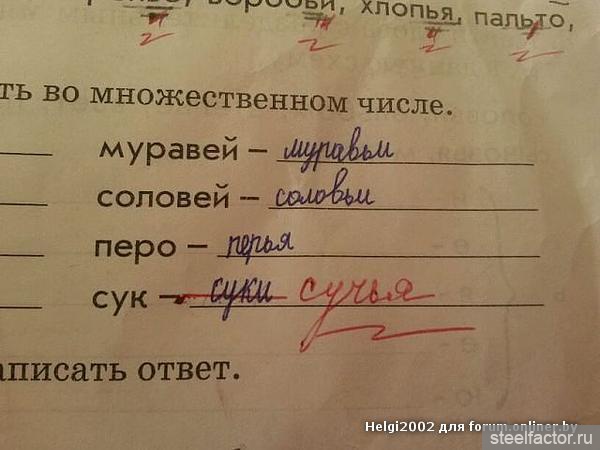 воробьи, хлопья, пальто,
ть во множественном числе.
муравей – муравьи
соловей – соловьи
перо – перья
сук – суки сучья
аписать ответ.
Helgi2002 для forum.onliner.by
steelfactor.ru